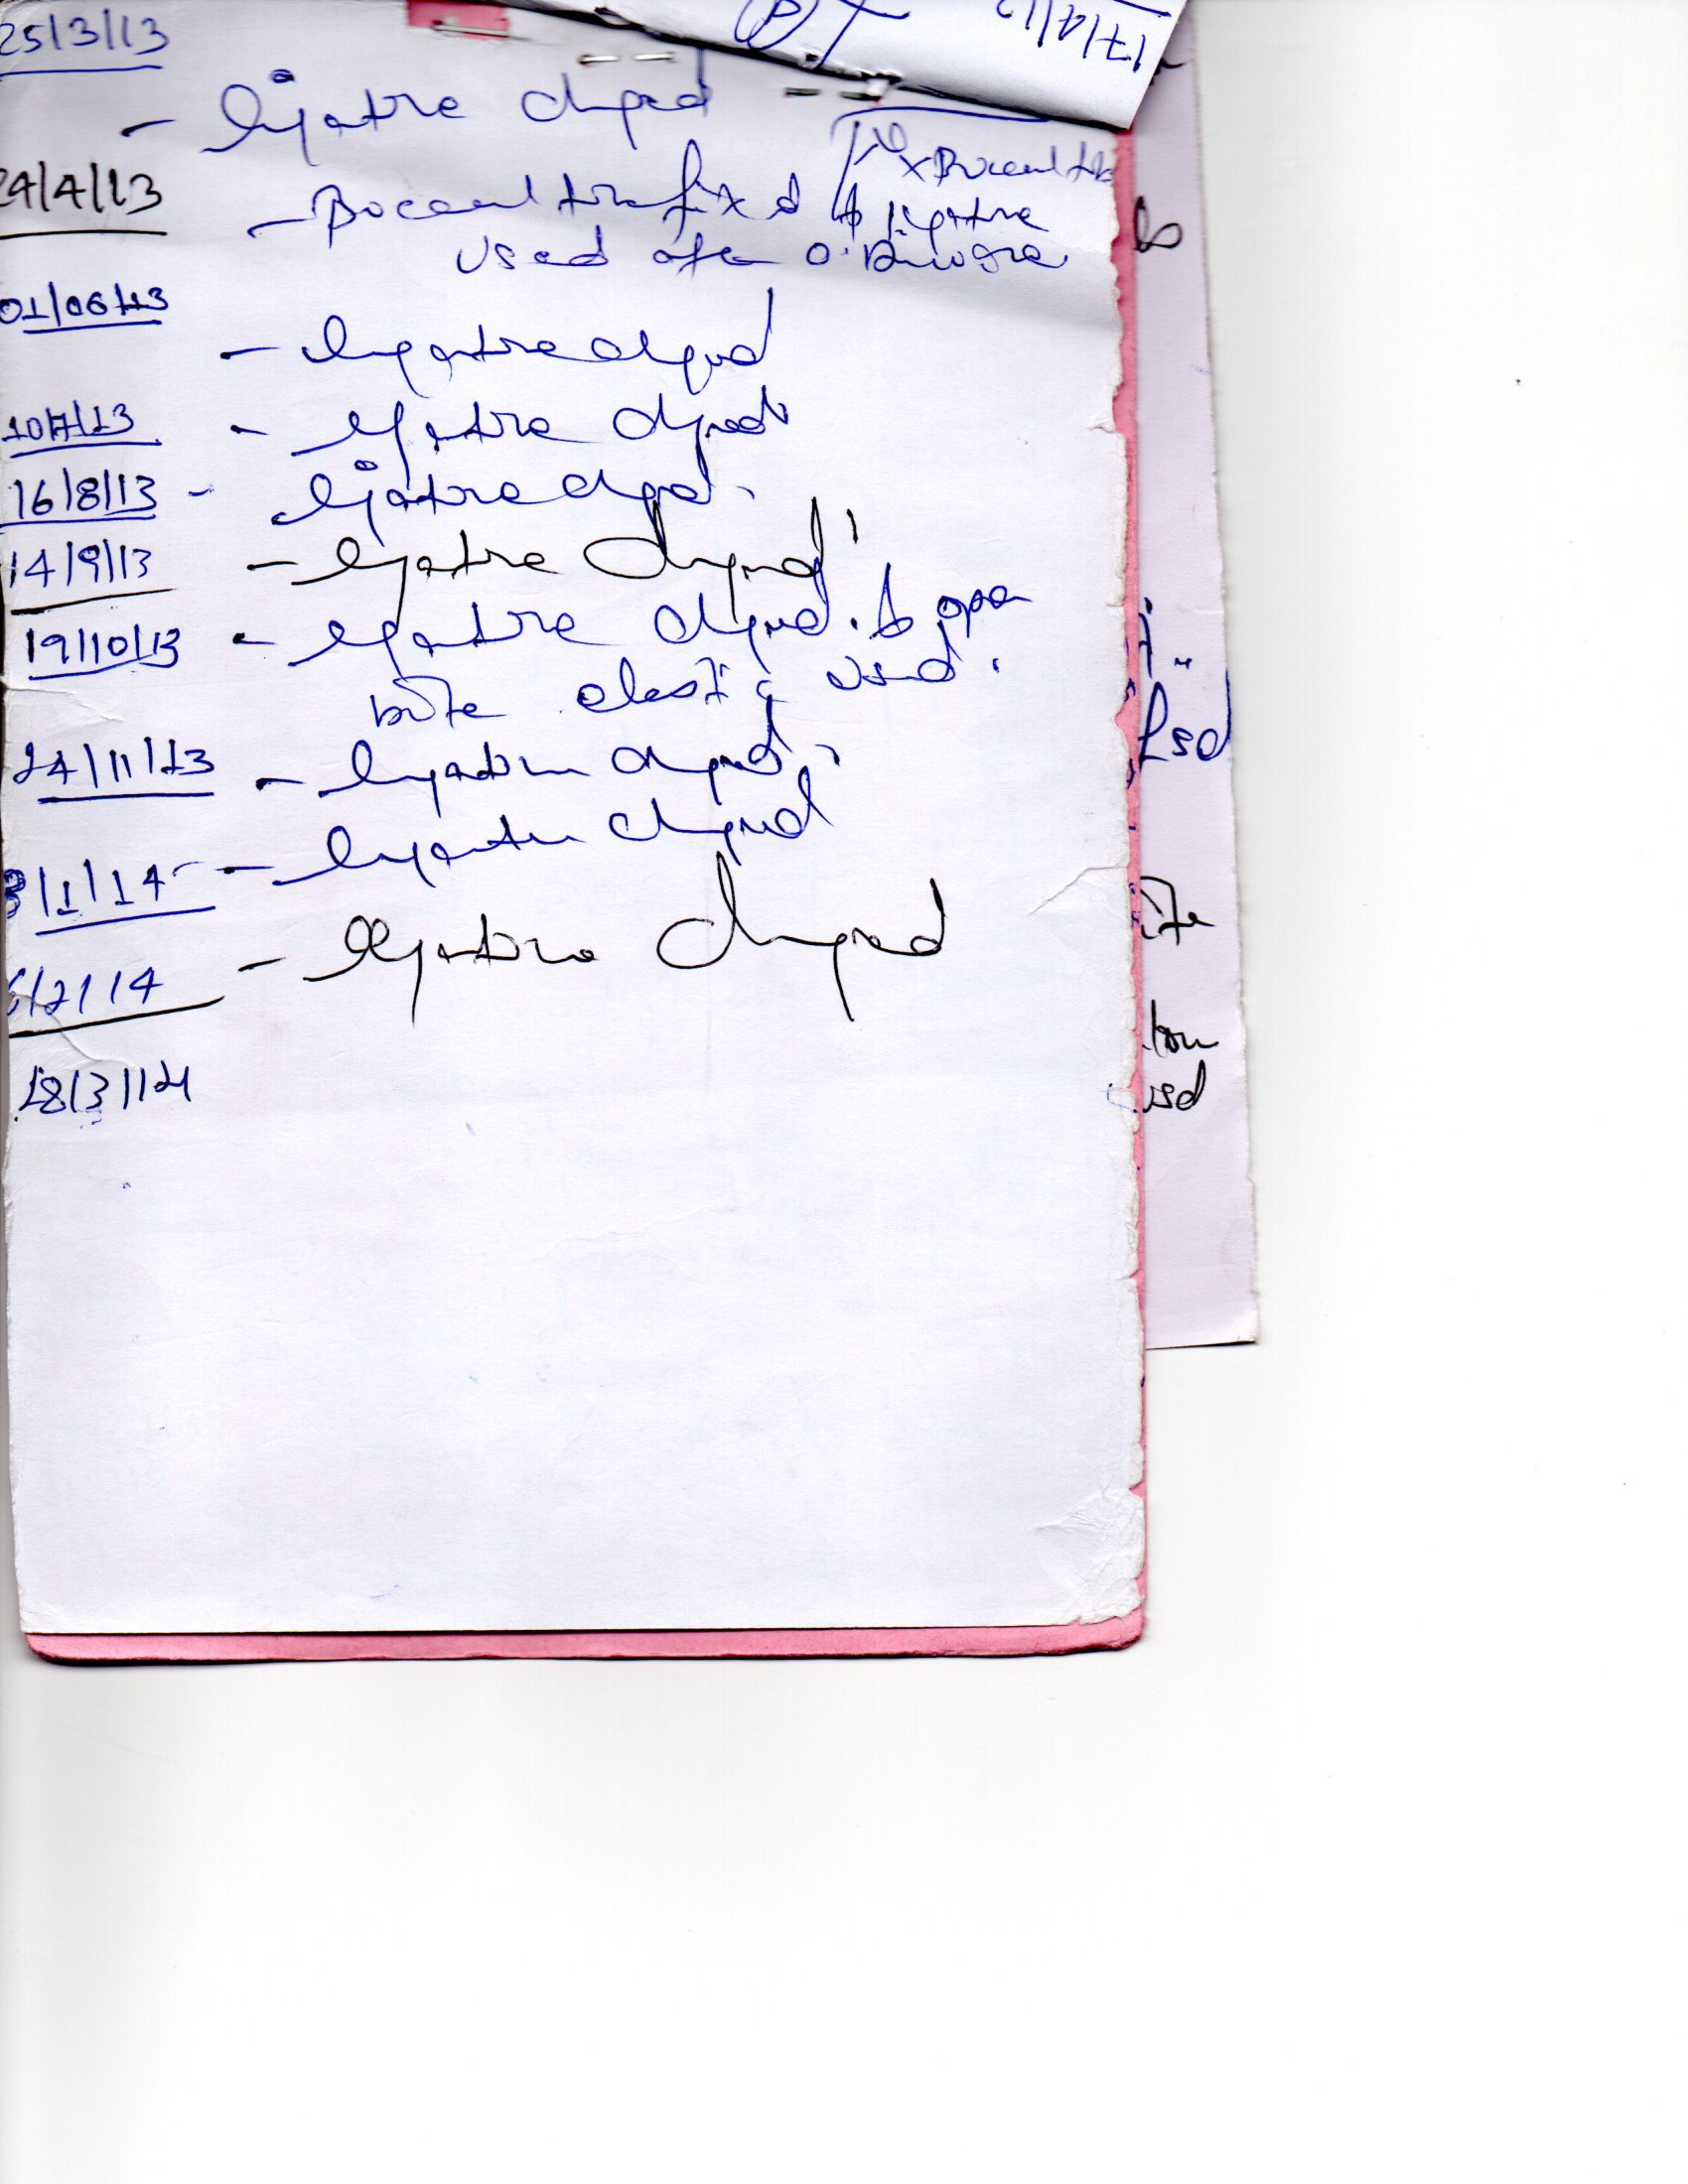 25/3/13
- ligature changed
24/4/13
- Buccal tube fixed & ligature
x Buccal tube
used after
01/06/13
- ligature changed
10/7/13 - ligature changed
16/8/13 - ligature changed.
14/9/13 - ligature changed
19/10/13 - ligature changed. & open
bite elastic used.
24/11/13 - ligature changed
/1/14 - ligature changed
/2/14 - ligature changed
18/3/14
17/4/12